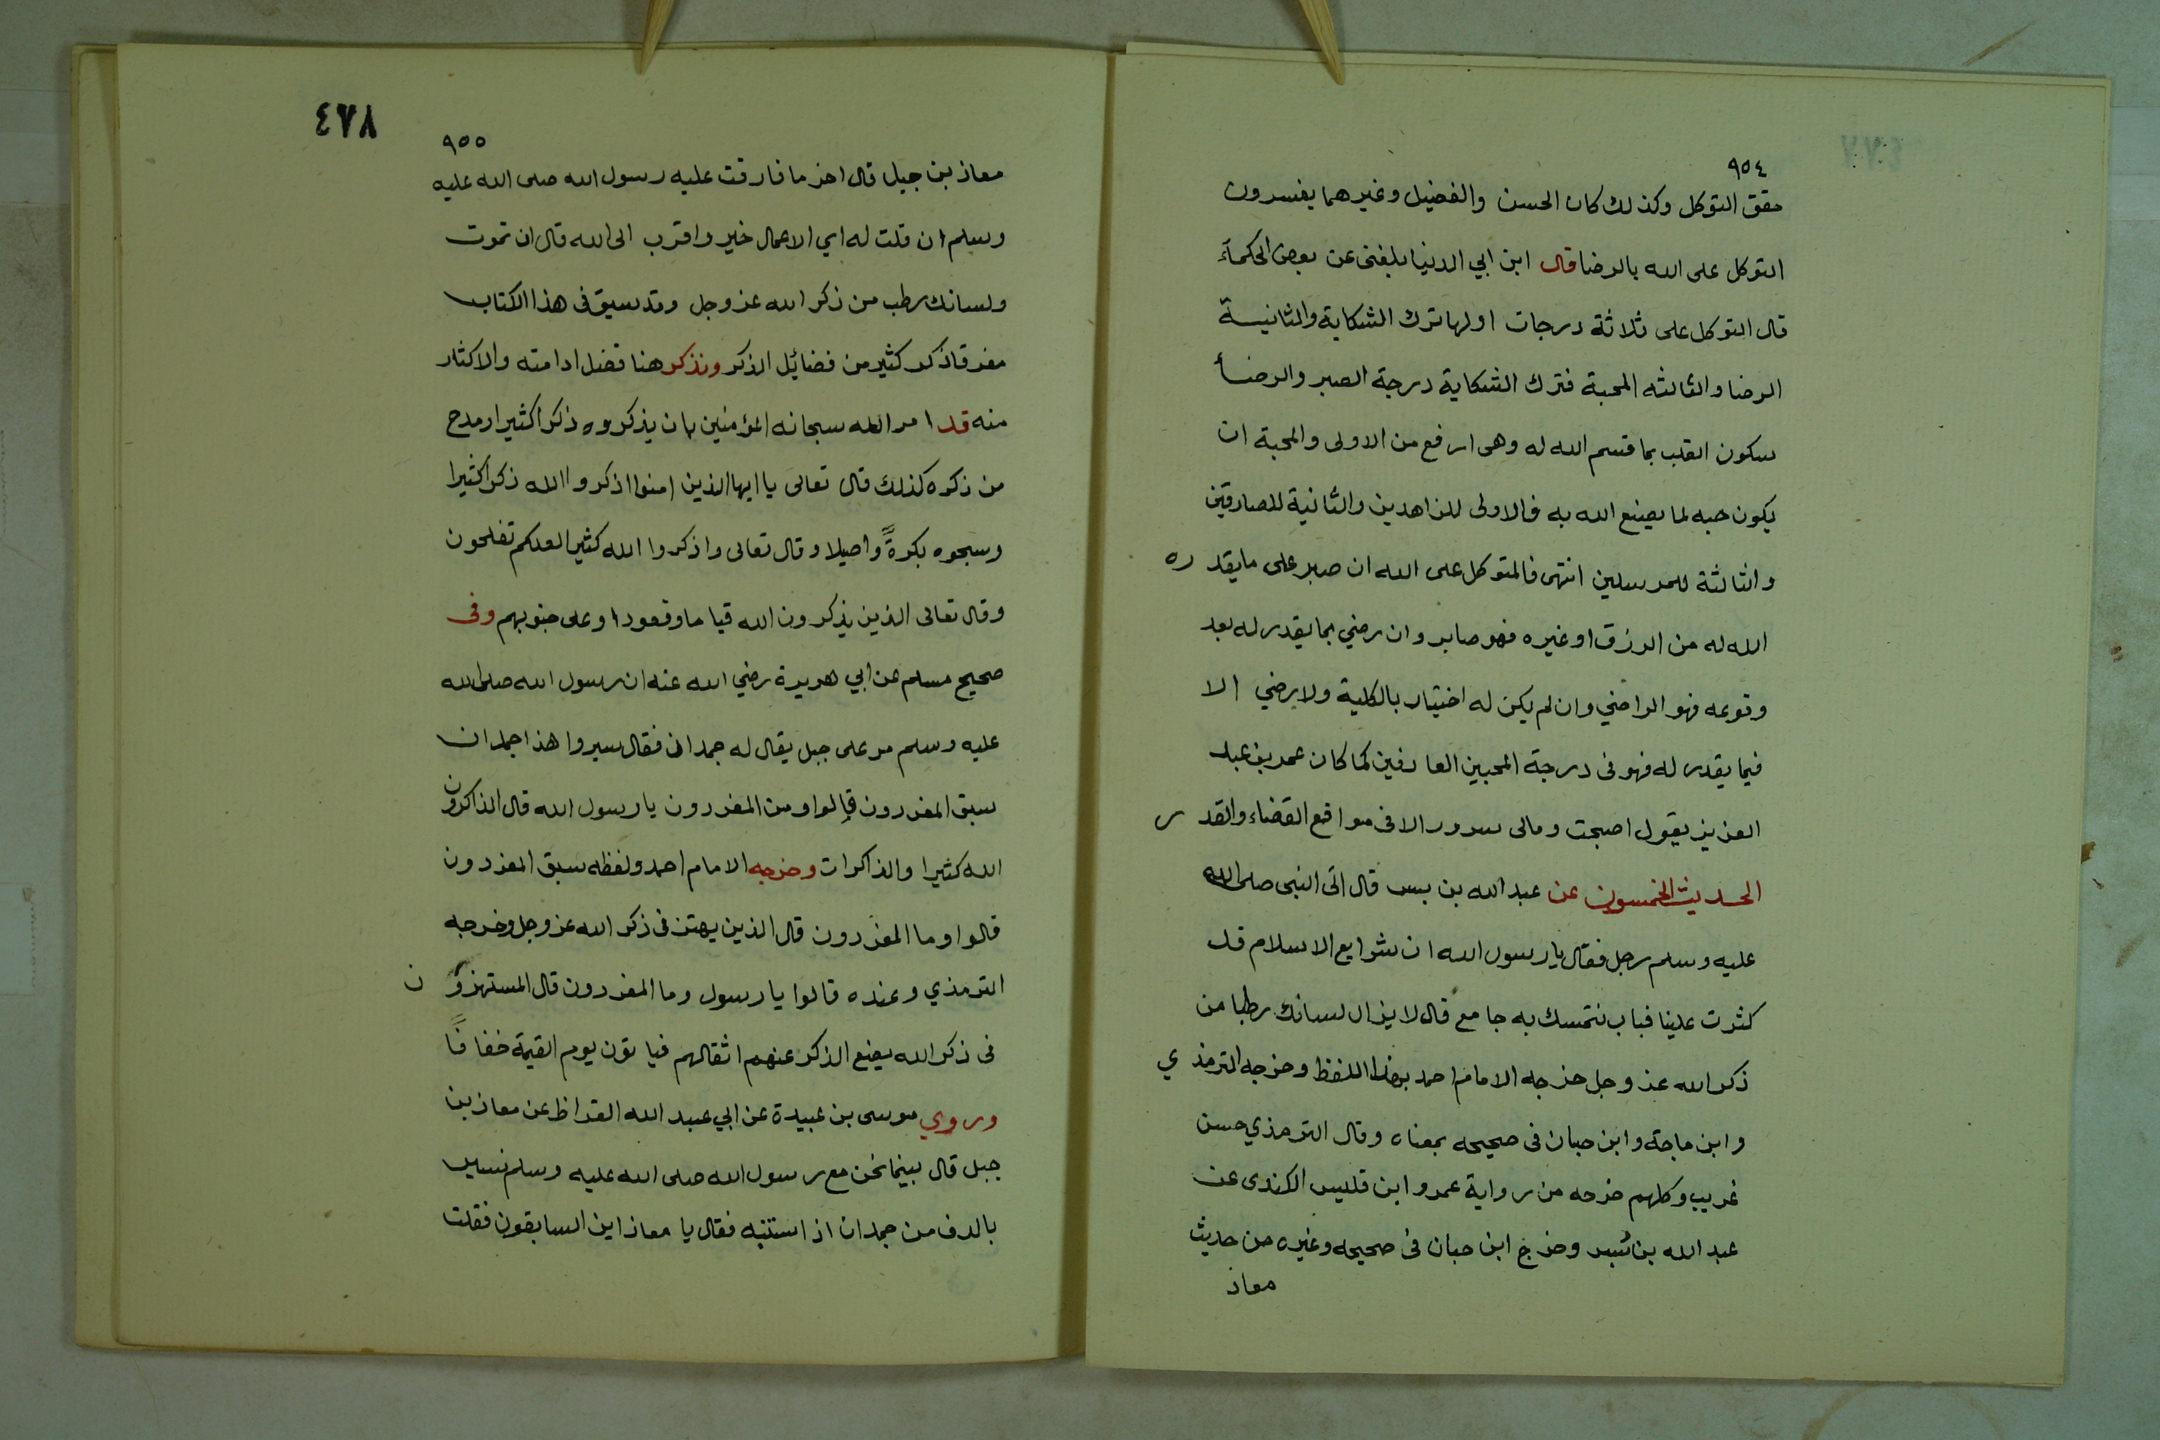 ٩٥٤
حقق التوكل وكذلك كان الحسن والفضيل وغيرهما يفسرون
التوكل على الله بالرضا قال ابن ابي الدنيا بلغني عن بعض الحكمآء
قال التوكل على ثلاثة درجات اولها ترك الشكاية والثانية
الرضا والثالثه المحبة فترك الشكاية درجة الصبر والرضا
سكون القلب بما قسم الله له وهى ارفع من الاولى والمحبة ان
يكون حبه لما يصنع الله به فالاولى للزاهدين والثانية للصادقين
والثالثة للمرسلين انتهى فالمتوكل على الله ان صبر على ما يقدره
الله له من الرزق او غيره فهو صابر وان رضي بما يقدر له بعد
وقوعه فهو الراضي وان لم يكن له اختيار بالكلية ولا يرضي الا
فيما يقدر له فهو فى درجة المحبين العارفين كما كان عمر بن عبد
العزيز يقول اصبحت ومالى سرور الا فى مواقع القضاء والقدر
الحديث الخمسون عن عبد الله بن بسر قال اتى النبى صلى الله
عليه وسلم رجل فقال يا رسول الله ان شرايع الاسلام قد
كثرت علينا فباب نتمسك به جامع قال لا يزال لسانك رطبا من
ذكر الله عز وجل خرجه الامام احمد بهذا اللفظ وخرجه الترمذي
وابن ماجة وابن حبان فى صحيحه بمعناه وقال الترمذي حسن
غريب وكلهم خرجه من رواية عمرو ابن قليس الكندى عن
عبد الله بن بُسر وخرج ابن حبان فى صحيحه وغيره من حديث
معاذ
٤٧٨
٩٥٥
معاذ بن جبل قال اخر ما فارقت عليه رسول الله صلى الله عليه
وسلم ان قلت له اي الاعمال خير واقرب الى الله قال ان تموت
ولسانك رطب من ذكر الله عز وجل وقد سبق فى هذا الكتاب
مفرقا ذكر كثير من فضائل الذكر ونذكر هنا فضل ادامته والاكثار
منه قد امر الله سبحانه المؤمنين بان يذكروه ذكرا كثيرا ومدح
من ذكره كذلك قال تعالى يا ايها الذين امنوا اذكروا الله ذكرا كثيرا
وسبحوه بكرةً واصيلا وقال تعالى واذكروا الله كثيرا لعلكم تفلحون
وقال تعالى الذين يذكرون الله قياما وقعودا وعلى جنوبهم وفى
صحيح مسلم عن ابي هريرة رضي الله عنه ان رسول الله صلى الله
عليه وسلم مر على جبل يقال له جمدان فقال سيروا هذا جمدان
سبق المفردون قالوا ومن المفردون يا رسول الله قال الذاكرون
الله كثيرا والذاكرات وخرجه الامام احمد ولفظه سبق المفردون
قالوا وما المفردون قال الذين يهتز فى ذكر الله عز وجل وخرجه
الترمذي وعنده قالوا يا رسول وما المفردون قال المستهزؤن
فى ذكر الله يضع الذكر عنهم اثقالهم فيا تون يوم القيمة خفافًا
وروي موسى بن عبيدة عن ابي عبد الله القراظ عن معاذ بن
جبل قال بينما نحن مع رسول الله صلى الله عليه وسلم نسير
بالدف من جمدان اذ استنبه فقال يا معاذ اين السابقون فقلت